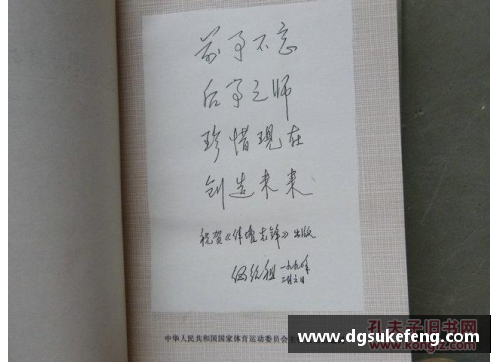 前事不忘
后事之师
珍惜现在
创造未来
祝贺《体坛先锋》出版
伍绍祖 一九九〇年
二月六日
中华人民共和国国家体育运动委员会
孔夫子旧
www.dgsukefeng.com